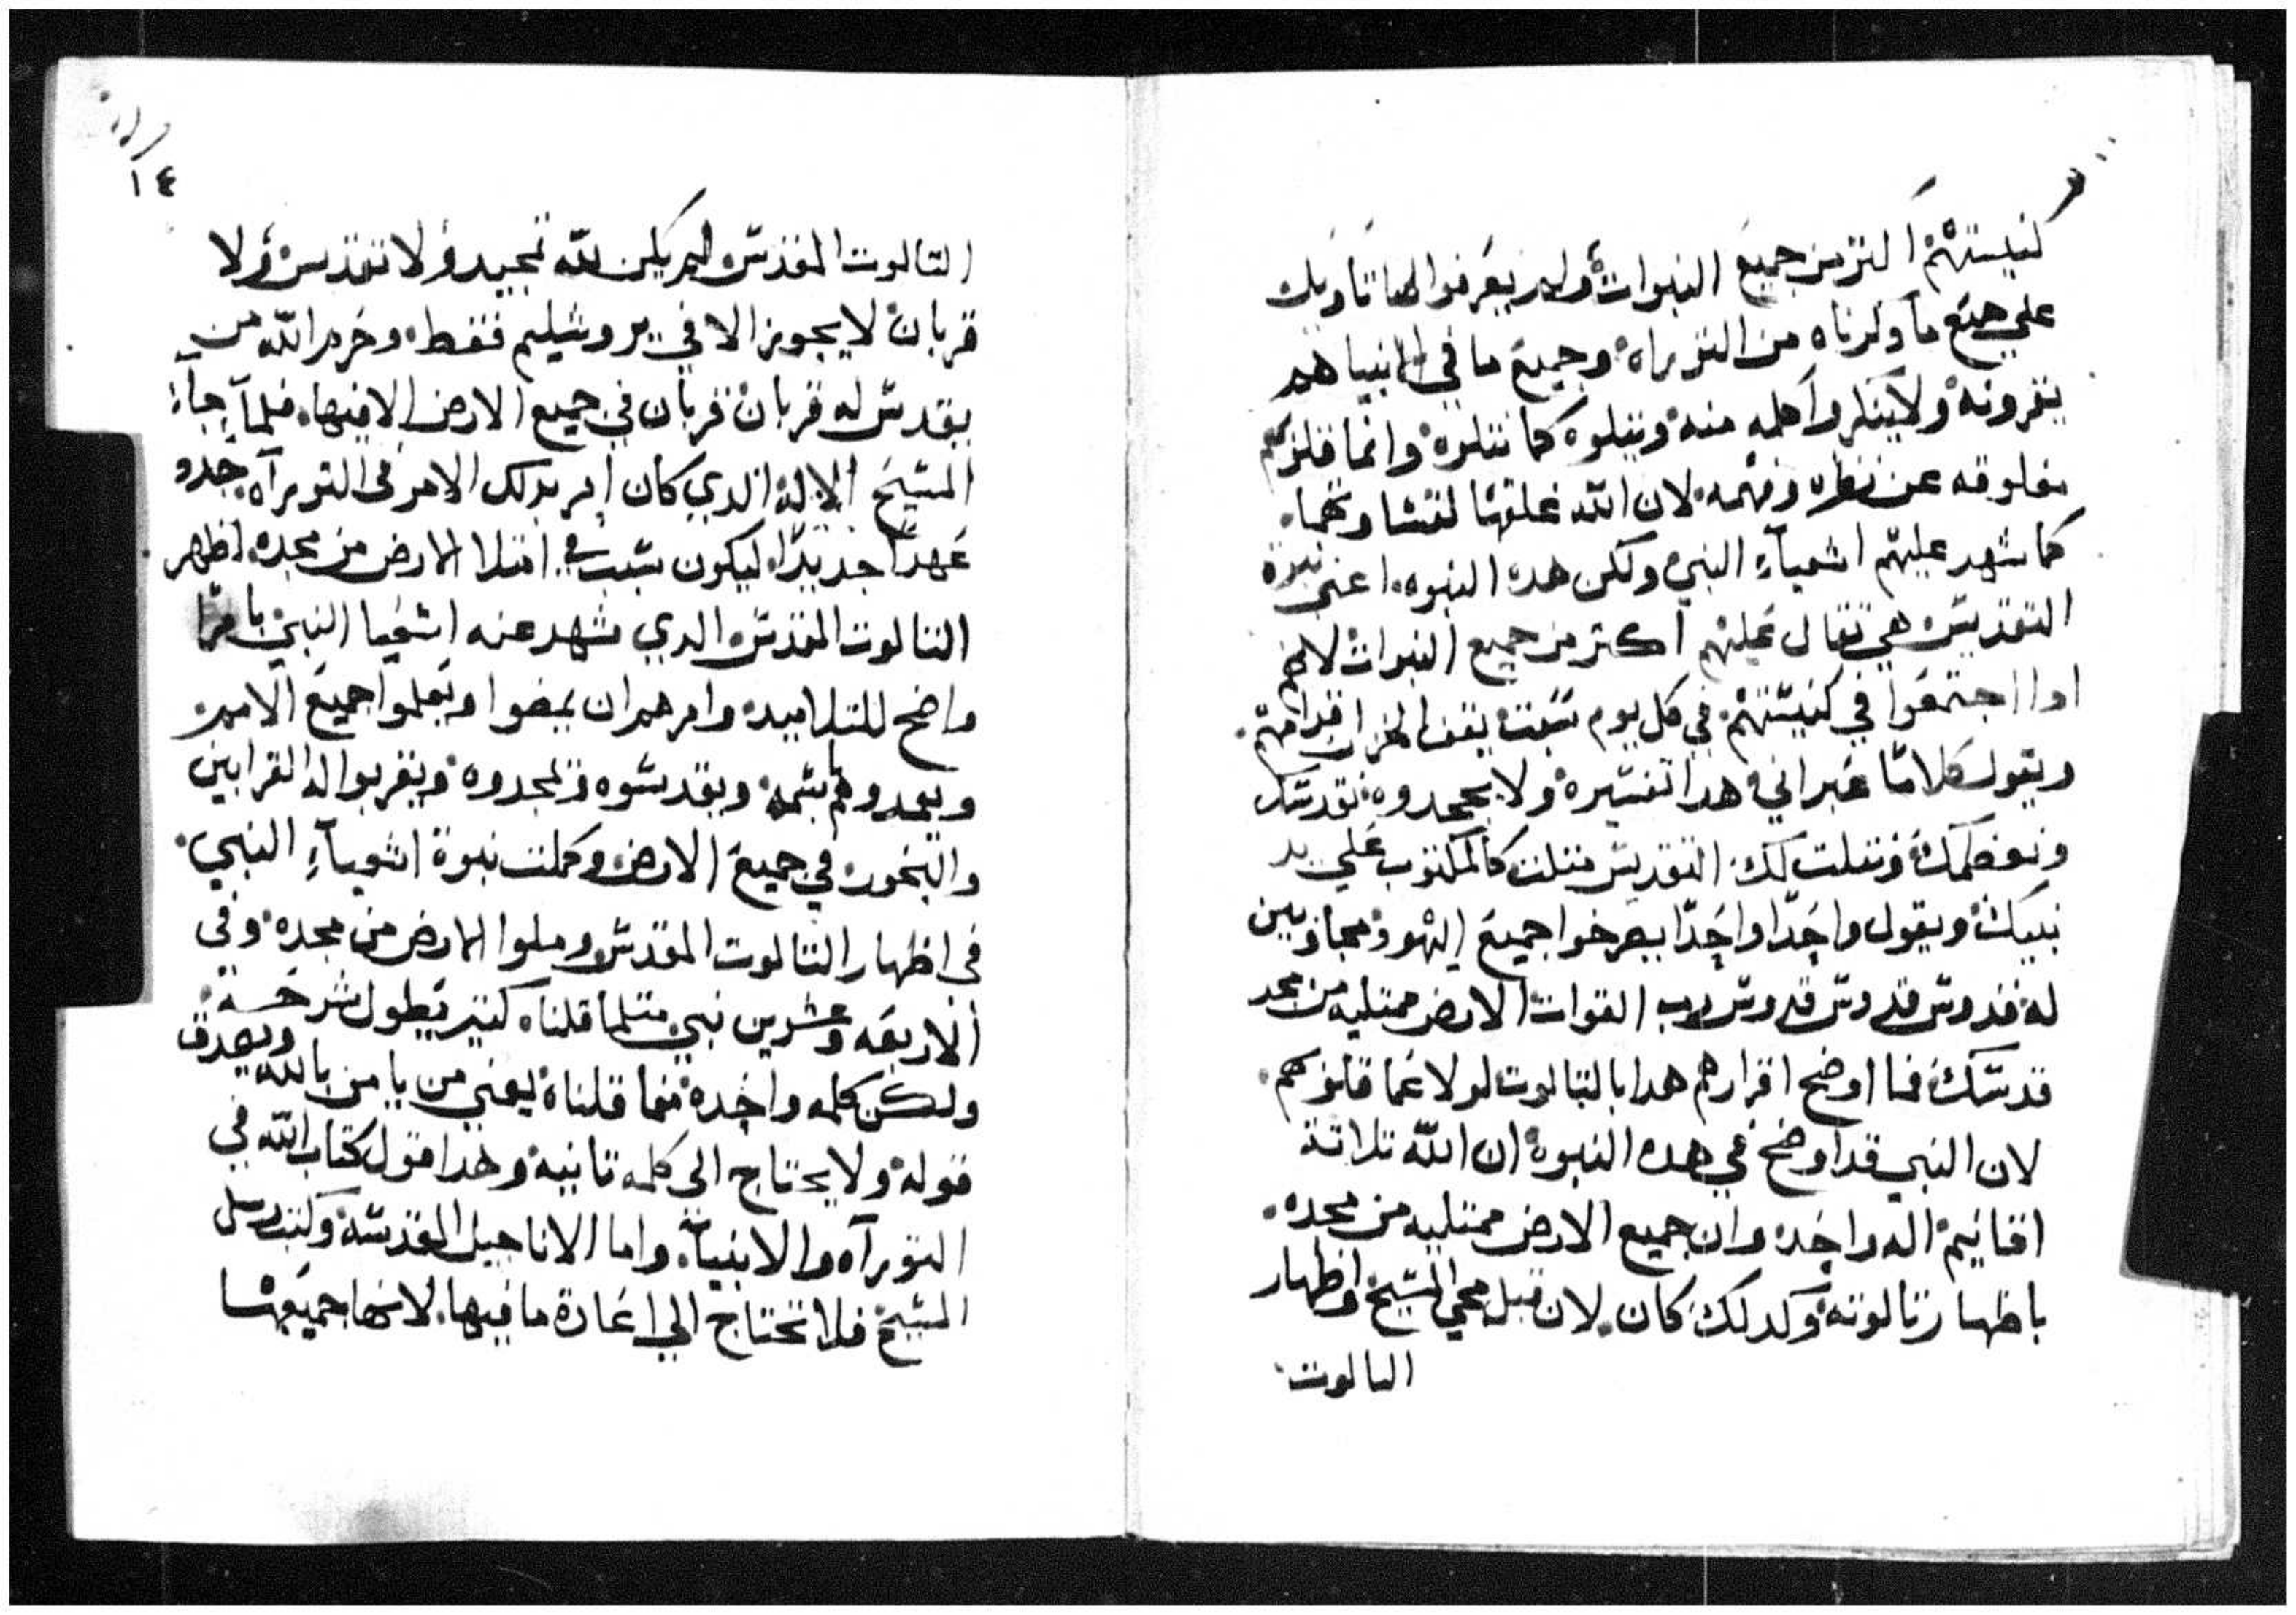 كنيستهم اكتر من جميع النبوات ولم يعرفوا لها تاويل
علي جميع ما دكرناه من التوراه وجميع ما في الانبيا هم
يقرونه ولا ينكروا كلمه منه ويتلوه كما نتلوه وانما قلوبهم
مغلوقه عن نظره وفهمه لان الله غلقها لقساوتها
كما شهد عليهم اشعياء النبي ولكن هده النبوه اعني نبوة
التقديس هي تقال عليهم اكتر من جميع النبوات لانهم
ادا اجتمعوا في كنيستهم في كل يوم سبت يقف الحزان قدامهم
ويقول كلامًا عبراني هدا تفسيره ولا يجحدوه نقدسك
ونعضمك ونتلت لك التقديس متلت كالمكتوب علي يد
نبيك ويقول واحدًا واحدًا يصرخوا جميع اليهود مجاوبين
له قدوس قدوس قدوس رب القوات الارض ممتليه من مجد
قدسك فما اوضح اقرارهم هدا بالتالوت لولا عما قلوبهم
لان النبي قد اوضح في هده النبوة ان الله تلاتة
اقانيم اله واحد وان جميع الارض ممتليه من مجده
باظهار تالوته وكدلك كان لان قبل مجي المسيح واظهار
التالوت
١٤
التالوت المقدس لم يكن لله تمجيد ولا تقديس ولا
قربان لا يجوز الا في يروشليم فقط وحرم الله من
يقدس له قربان قربان في جميع الارض الا فيها فلما جاء
المسيح الاله الدي كان امر بدلك الامر في التوراه جدد
عهدًا جديدًا ليكون سبب في امتلا الارض من مجده اظهر
التالوت المقدس الدي شهد عنه اشعيا النبي بامرًا
واضح للتلاميد وامرهم ان يمضوا ويعلموا جميع الامم
ويعمدوهم باسمه ويقدسوه ويمجدوه ويقربوا له القرابين
والبخور في جميع الارض وكملت نبوة اشعياء النبي
في اظهار التالوت المقدس وملوا الارض من مجده وفي
الاربعه وعشرين نبي متلما قلناه كتير يطول شرحه
ولكن كلمه واحده مما قلناه ليغني من يامن بالله ويصدق
قوله ولا يحتاج الي كلمه تانيه وهدا قول كتاب الله في
التوراه والانبياء واما الاناجيل المقدسه وكتب رسل
المسيح فلا تحتاج الي اعادة ما فيها لانها جميعها